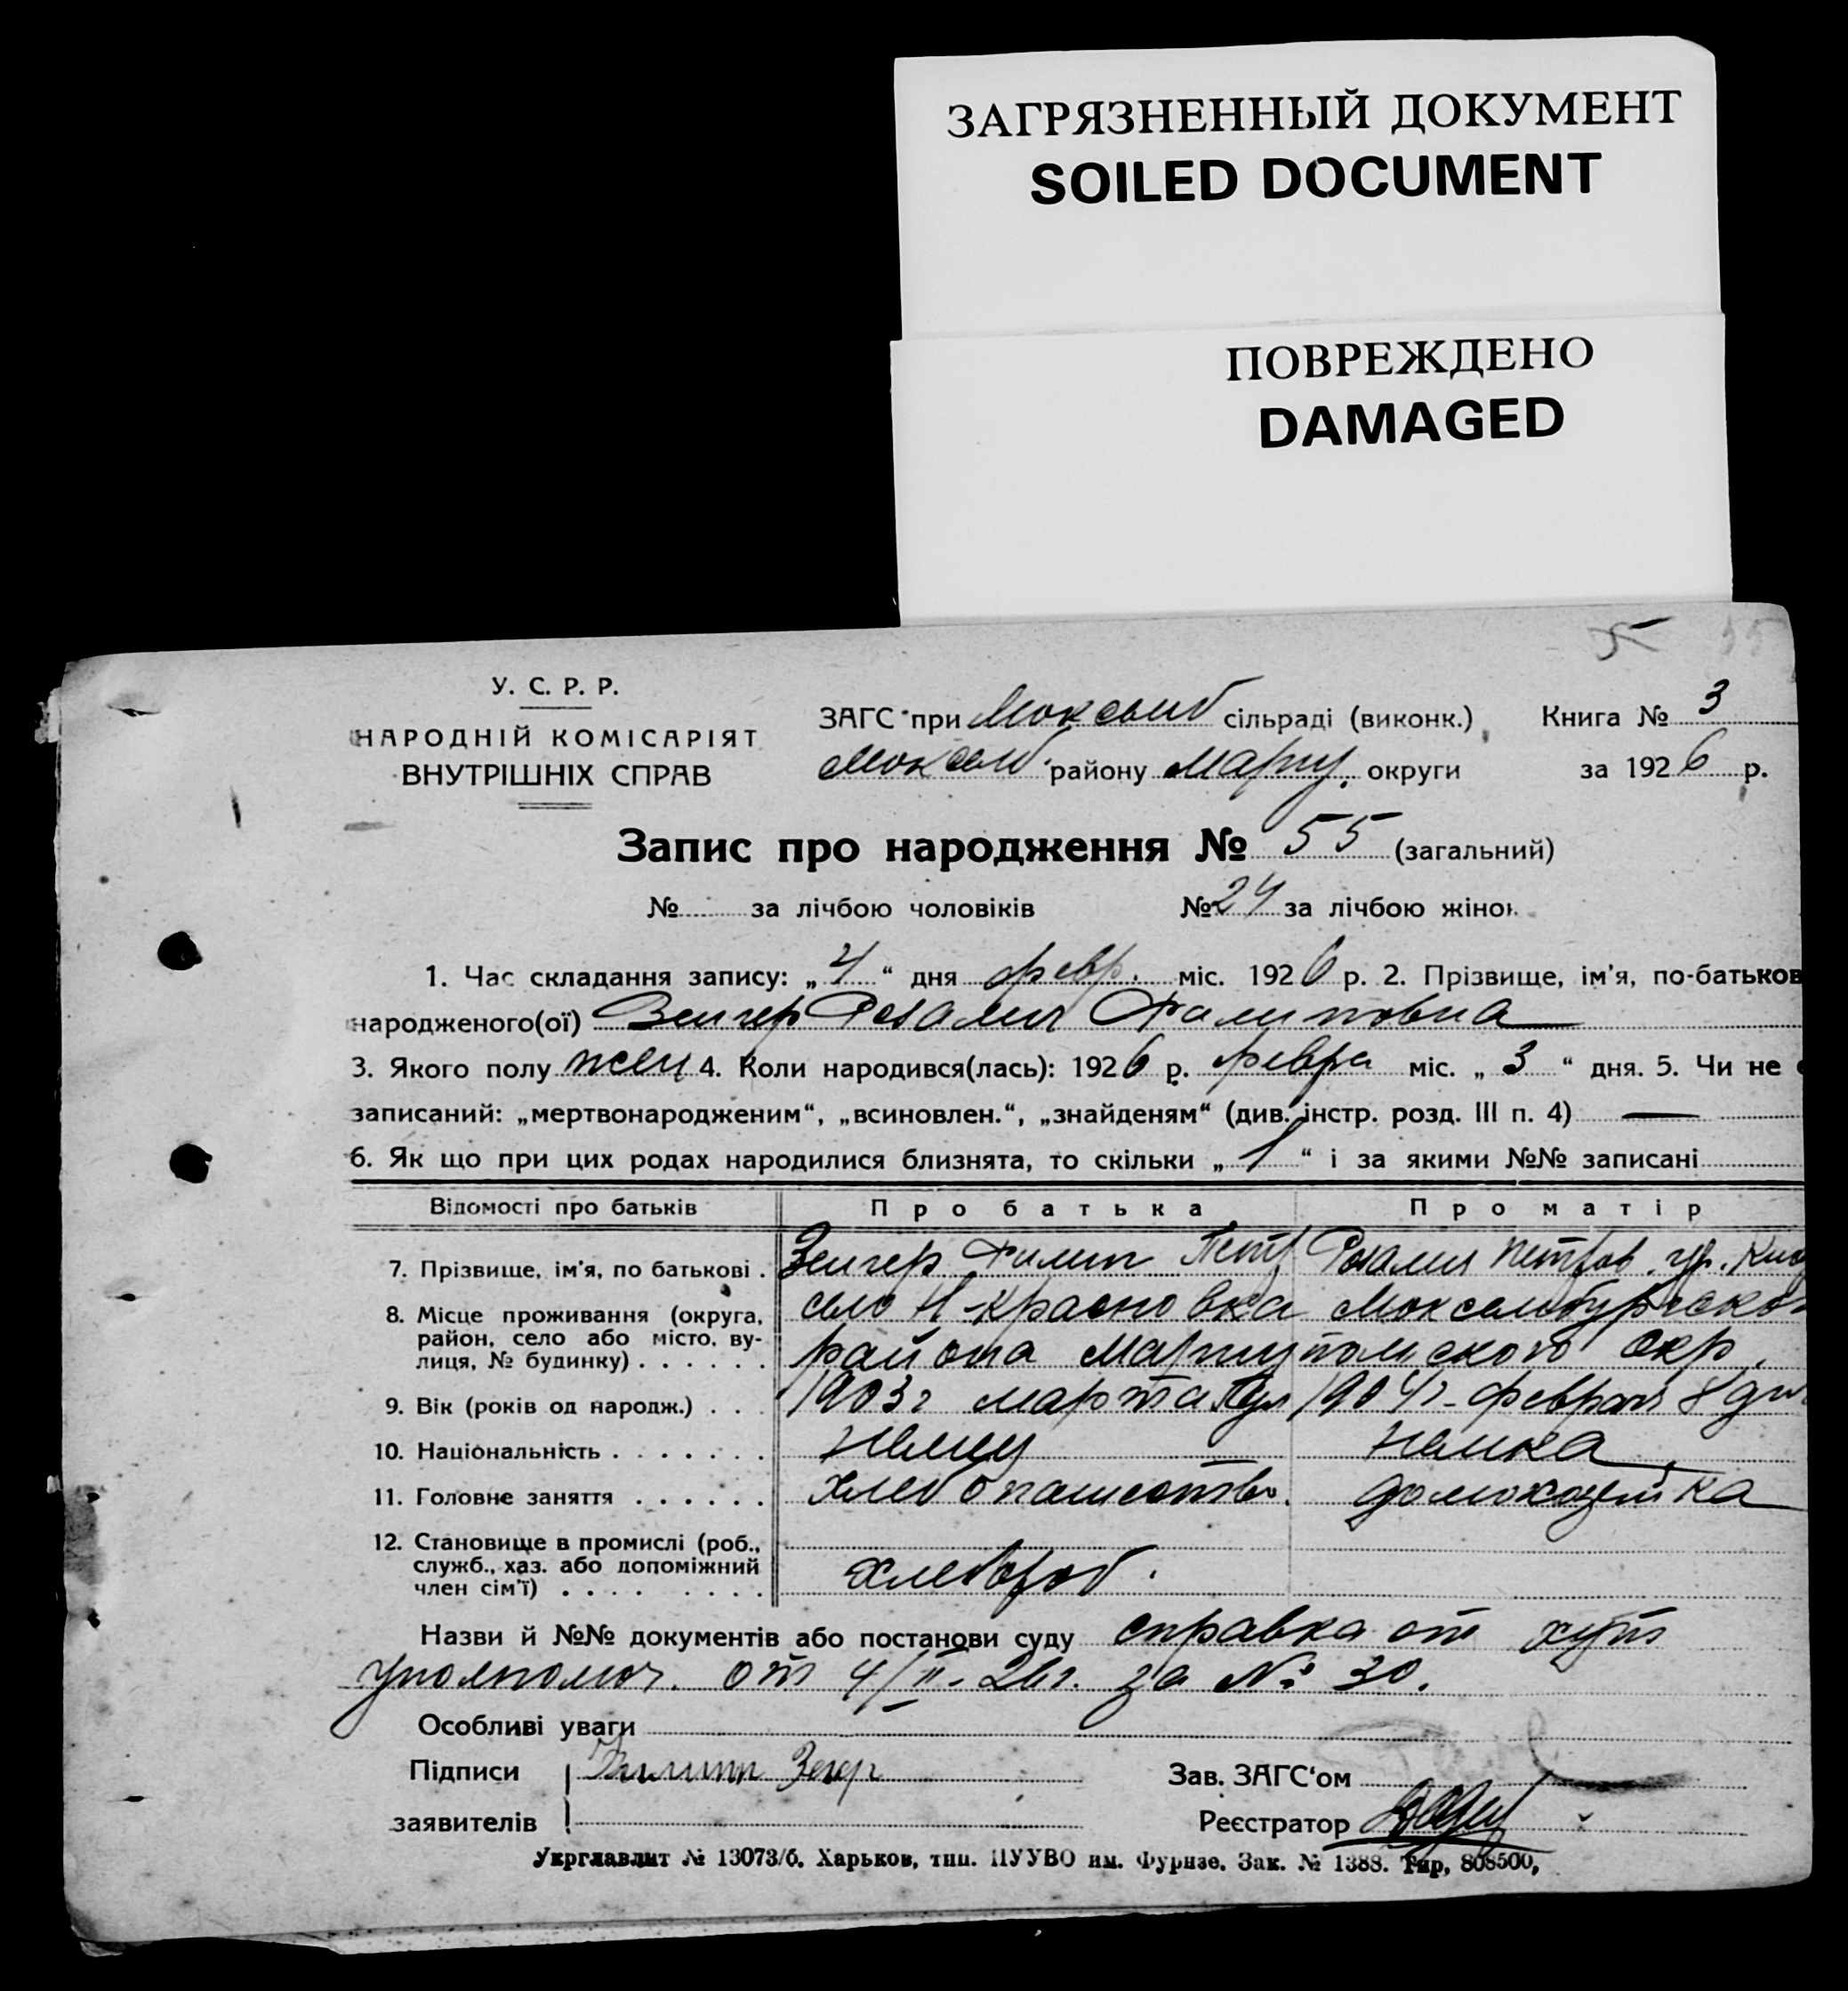 ЗАГРЯЗНЕННЫЙ ДОКУМЕНТ
SOILED DOCUMENT
ПОВРЕЖДЕНО
DAMAGED
У. С. Р. Р.
НАРОДНІЙ КОМІСАРІЯТ
ВНУТРІШНІХ СПРАВ
ЗАГС при сільраді (виконк.) Книга № 3
району Мариу. округи за 1926 р.
Запис про народження № 55 (загальний)
№ за лічбою чоловіків №24 за лічбою жінок
1. Час складання запису: „4“ дня февр. міс. 1926 р. 2. Прізвище, ім'я, по-батьков
народженого(ої) Зенгер Розалия Филиповна
3. Якого полу жен 4. Коли народився(лась): 1926 р. февра міс. „3“ дня. 5. Чи не
записаний: „мертвонародженим“, „всиновлен.“, „знайденям“ (див. інстр. розд. III п. 4) —
6. Як що при цих родах народилися близнята, то скільки „1“ і за якими №№ записані
Відомості про батьків Про батька Про матір
7. Прізвище, ім'я, по батькові . Зенгер Филип Петр Розалия Петров. ур.
8. Місце проживання (округа, район, село або місто, вулиця, № будинку) . . . . . . село Н-Красновка
района Мариупольского окр.
9. Вік (років од народж.) . . . 1903г марта 1904г. февраля 8 дня
10. Національність . . . . . . . Немец Немка
11. Головне заняття . . . . . . Хлебопашество. домохозяйка
12. Становище в промислі (роб., служб., хаз. або допоміжний член сім'ї) . . . . . . . . хлебороб.
Назви й №№ документів або постанови суду справка от хут
уполномоч. от 4/II-26г. за № 30.
Особливі уваги
Підписи Зав. ЗАГС'ом
заявителів Реєстратор
Укрглавліт № 13073/6. Харьков, тип. ПУУВО им. Фрунзе. Зак. № 1388. Тир, 808500,